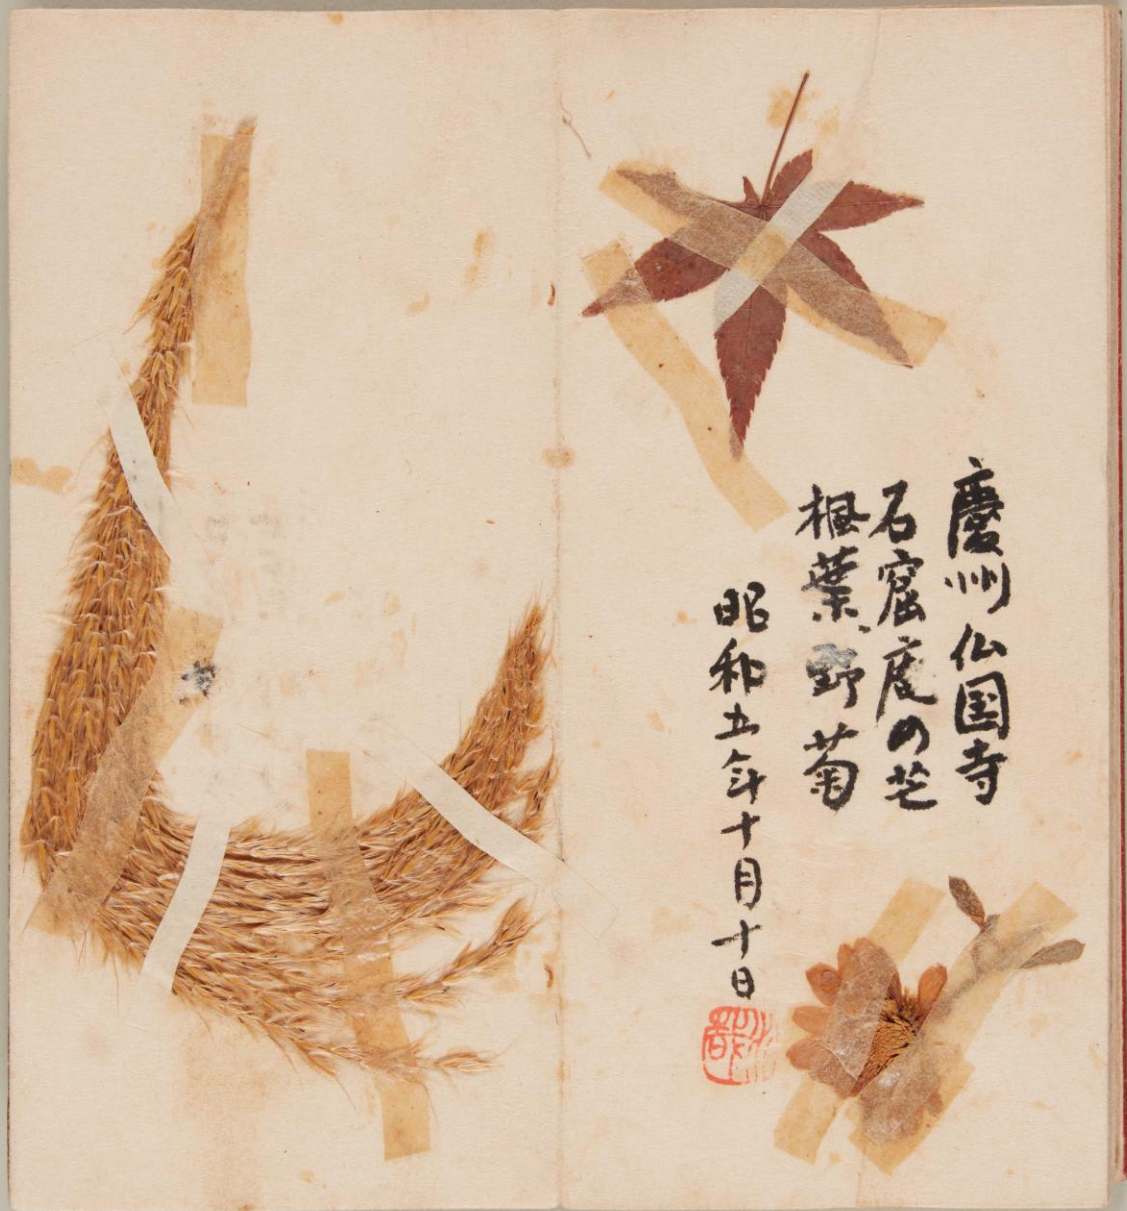 慶州仏国寺
石窟庵の芒
楓葉、野菊
昭和五年十月十日